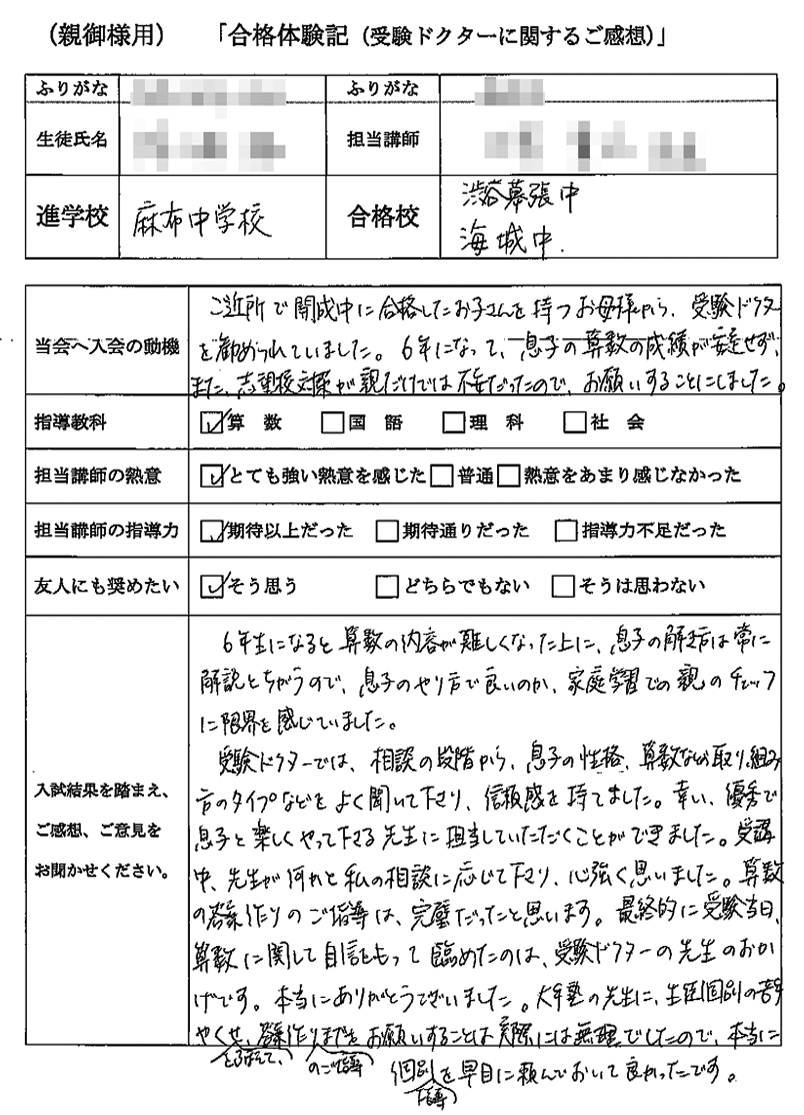 （親御様用）　「合格体験記（受験ドクターに関するご感想）」
ふりがな　ふりがな
生徒氏名　担当講師
進学校　麻布中学校　合格校　渋谷幕張中
海城中.
当会へ入会の動機
ご近所で開成中に合格したお子さんを持つお母様から、受験ドクター
を勧められていました。6年になって、息子の算数の成績が安定せず、
また、志望校対策が親だけでは不安だったので、お願いすることにしました。
指導教科　☑算　数　□国　語　□理　科　□社　会
担当講師の熱意　☑とても強い熱意を感じた□普通□熱意をあまり感じなかった
担当講師の指導力　☑期待以上だった　□期待通りだった　□指導力不足だった
友人にも奨めたい　☑そう思う　□どちらでもない　□そうは思わない
入試結果を踏まえ、
ご感想、ご意見を
お聞かせください。
6年生になると算数の内容が難しくなった上に、息子の解き方は常に
解説とちがうので、息子のやり方で良いのか、家庭学習での親のチェック
に限界を感じていました。
受験ドクターでは、相談の段階から、息子の性格、算数などの取り組み
方のタイプなどをよく聞いて下さり、信頼感を持てました。幸い、優秀で
息子と楽しくやって下さる先生に担当していただくことができました。受講
中、先生が何かと私の相談に応じて下さり、心強く思いました。算数
の答案作りのご指導は、完璧だったと思います。最終的に受験当日、
算数に関して自信をもって臨めたのは、受験ドクターの先生のおか
げです。本当にありがとうございました。大手塾の先生に、生徒個別の苦手
やくせ、答案作りまでをお願いすることは実際には無理でしたので、本当に
をふまえて、　のご指導
個別を早目に頼んでおいて良かったです。
指導